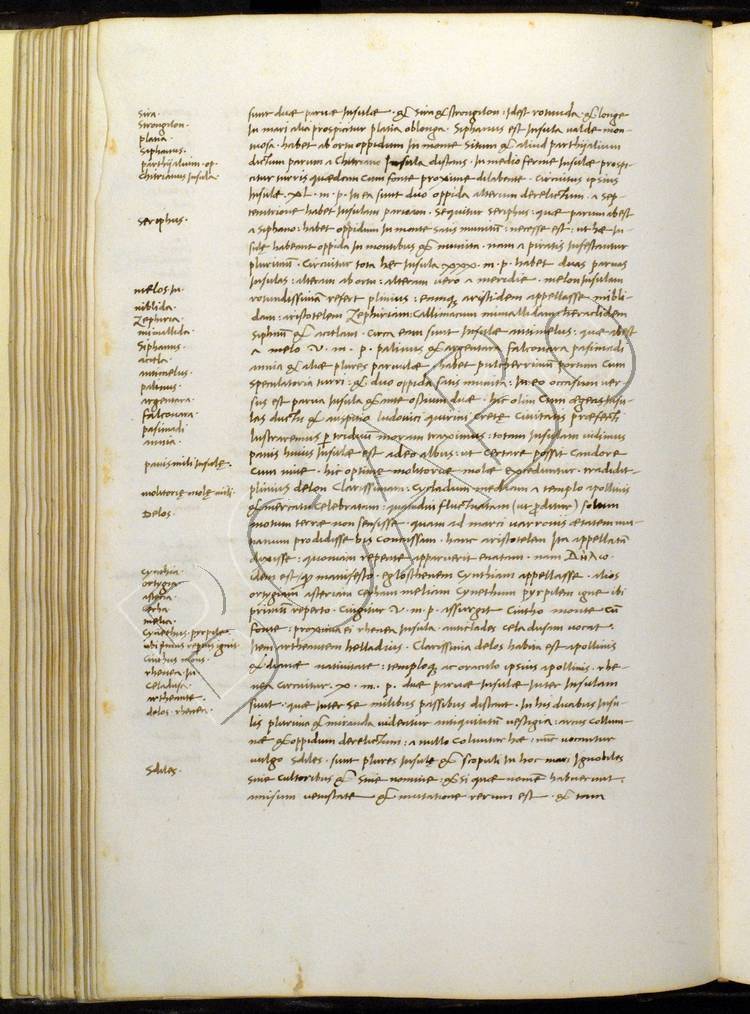 Sira·
Strongilon·
platia·
Siphanus·
parthẏalium· op·
Chitrianus Insula·
seriphus·
melos In·
niblida·
Zephiria·
mimallida·
Siphanus·
acitla·
antimelus·
palinus·
argentara·
falconara·
pasimadi
annia·
panis mili Insule·
molitorie mole mili·
Delos·
Cynthia·
ortygia·
asteria·
cerha·
melia·
Cynethus· pyrpile·
ubi primus repertus ignis·
Cinthus mons·
rhenea In·
Celadusa·
arthemite·
delos· rhenea·
Sdiles·
sunt duæ paruæ Insulæ· & Sira & strongilon: Idest rotunda· & longe
In mari alia prospicitur platia oblonga· Siphanus est Insula ualde mon-
tuosa· habet ab ortu oppidum In monte Situm & aliud parthẏalium
dictum parum a Chitriano Insula distans· In medio ferme Insulæ prospi-
citur turris quædam cum fonte proxime dilabente· Circuitus ipsius
Insulæ· XL· m· p· In ea sunt duo oppida alterum derelictum· a sep-
tentrione habet Insulam pariam· Sequitur seriphus· quæ parum abest
a siphano: habet oppidum In monte satis munitũ: necesse est: ut hæ In-
sulę habeant oppida In montibus & munita· nam a piratis Infestantur
plurimũ· Circuitur tota hec Insula XXXX· m· p· habet duas paruas
Insulas: alteram ab ortu: alteram uero a meridie· melon Insulam
rotundissimã refert plinius: eamq; aristidem appellasse nibli-
dam: aristotelem Zephiriam: Callimacum mimallidam: heraclidem
Siphnũ & acitlam· Circa eam sunt Insulæ antimelus: quæ abest
a melo V· m· p· palinus & argentara falconara pasimadi
annia & aliæ plures paruulæ· habet pulcherrimũ portum Cum
speculatoria turri· & duo oppida satis munita: In eo occasum uer
sus est parua Insula & ante ostium duæ· hic olim Cum ægeas Insu-
las ductu & auspitio ludouici quirini Cretę Ciuitatis præfecti
lustraremus p triduũ moram traximus: totam Insulam uidimus
panis huius Insulæ est adeo albus: ut Certare possit Candore
Cum niue· hic optimę molitoriæ molæ expediuntur· tradidit
plinius delon Clarissimam: Cycladum mediam a templo apollinis
& mercatu celebratam: quamdiu fluctuatam (ut proditur) solum
motum terræ non sensisse· quam ad marci uarronis ætatem mu-
tianum prodidisse bis concussam· hanc aristotelem Ita appellatã
duxisse: quoniam repente apparuerit enatam· nam Δῆλο
dem est quod manifesto· eglosthenem Cynthiam appellasse· alios
ortygiam asteriam cerham meliam Cynethum pyrpilem igne ibi
primum reperto· Cingitur V· m· p· assurgit Cintho monte cũ
fonte: proxima ei rhenea Insula· anticlides celadusam uocat·
Item arthemitem helladius· Clarissima delos habita est apollinis
& dianæ natiuitate: temploq; ac oraculo ipsius apollinis· rhe-
nea circuitur· X· m· p· duæ paruæ Insulæ Inter Insulam
sunt· quæ Inter se milibus passibus distant· In his duabus Insu-
lis plurima & miranda uidentur antiquitatũ uestigia: arcus collum-
næ & oppidum derelictum: a nullo Coluntur hæ: nũc uocantur
uulgo Sdiles· sunt plures Insulę & scopuli In hoc mari Ignobiles
siue cultoribus & siue nomine: & si quæ nomẽ habuerunt
amisum uetustate & mutatione rerum est· & tam